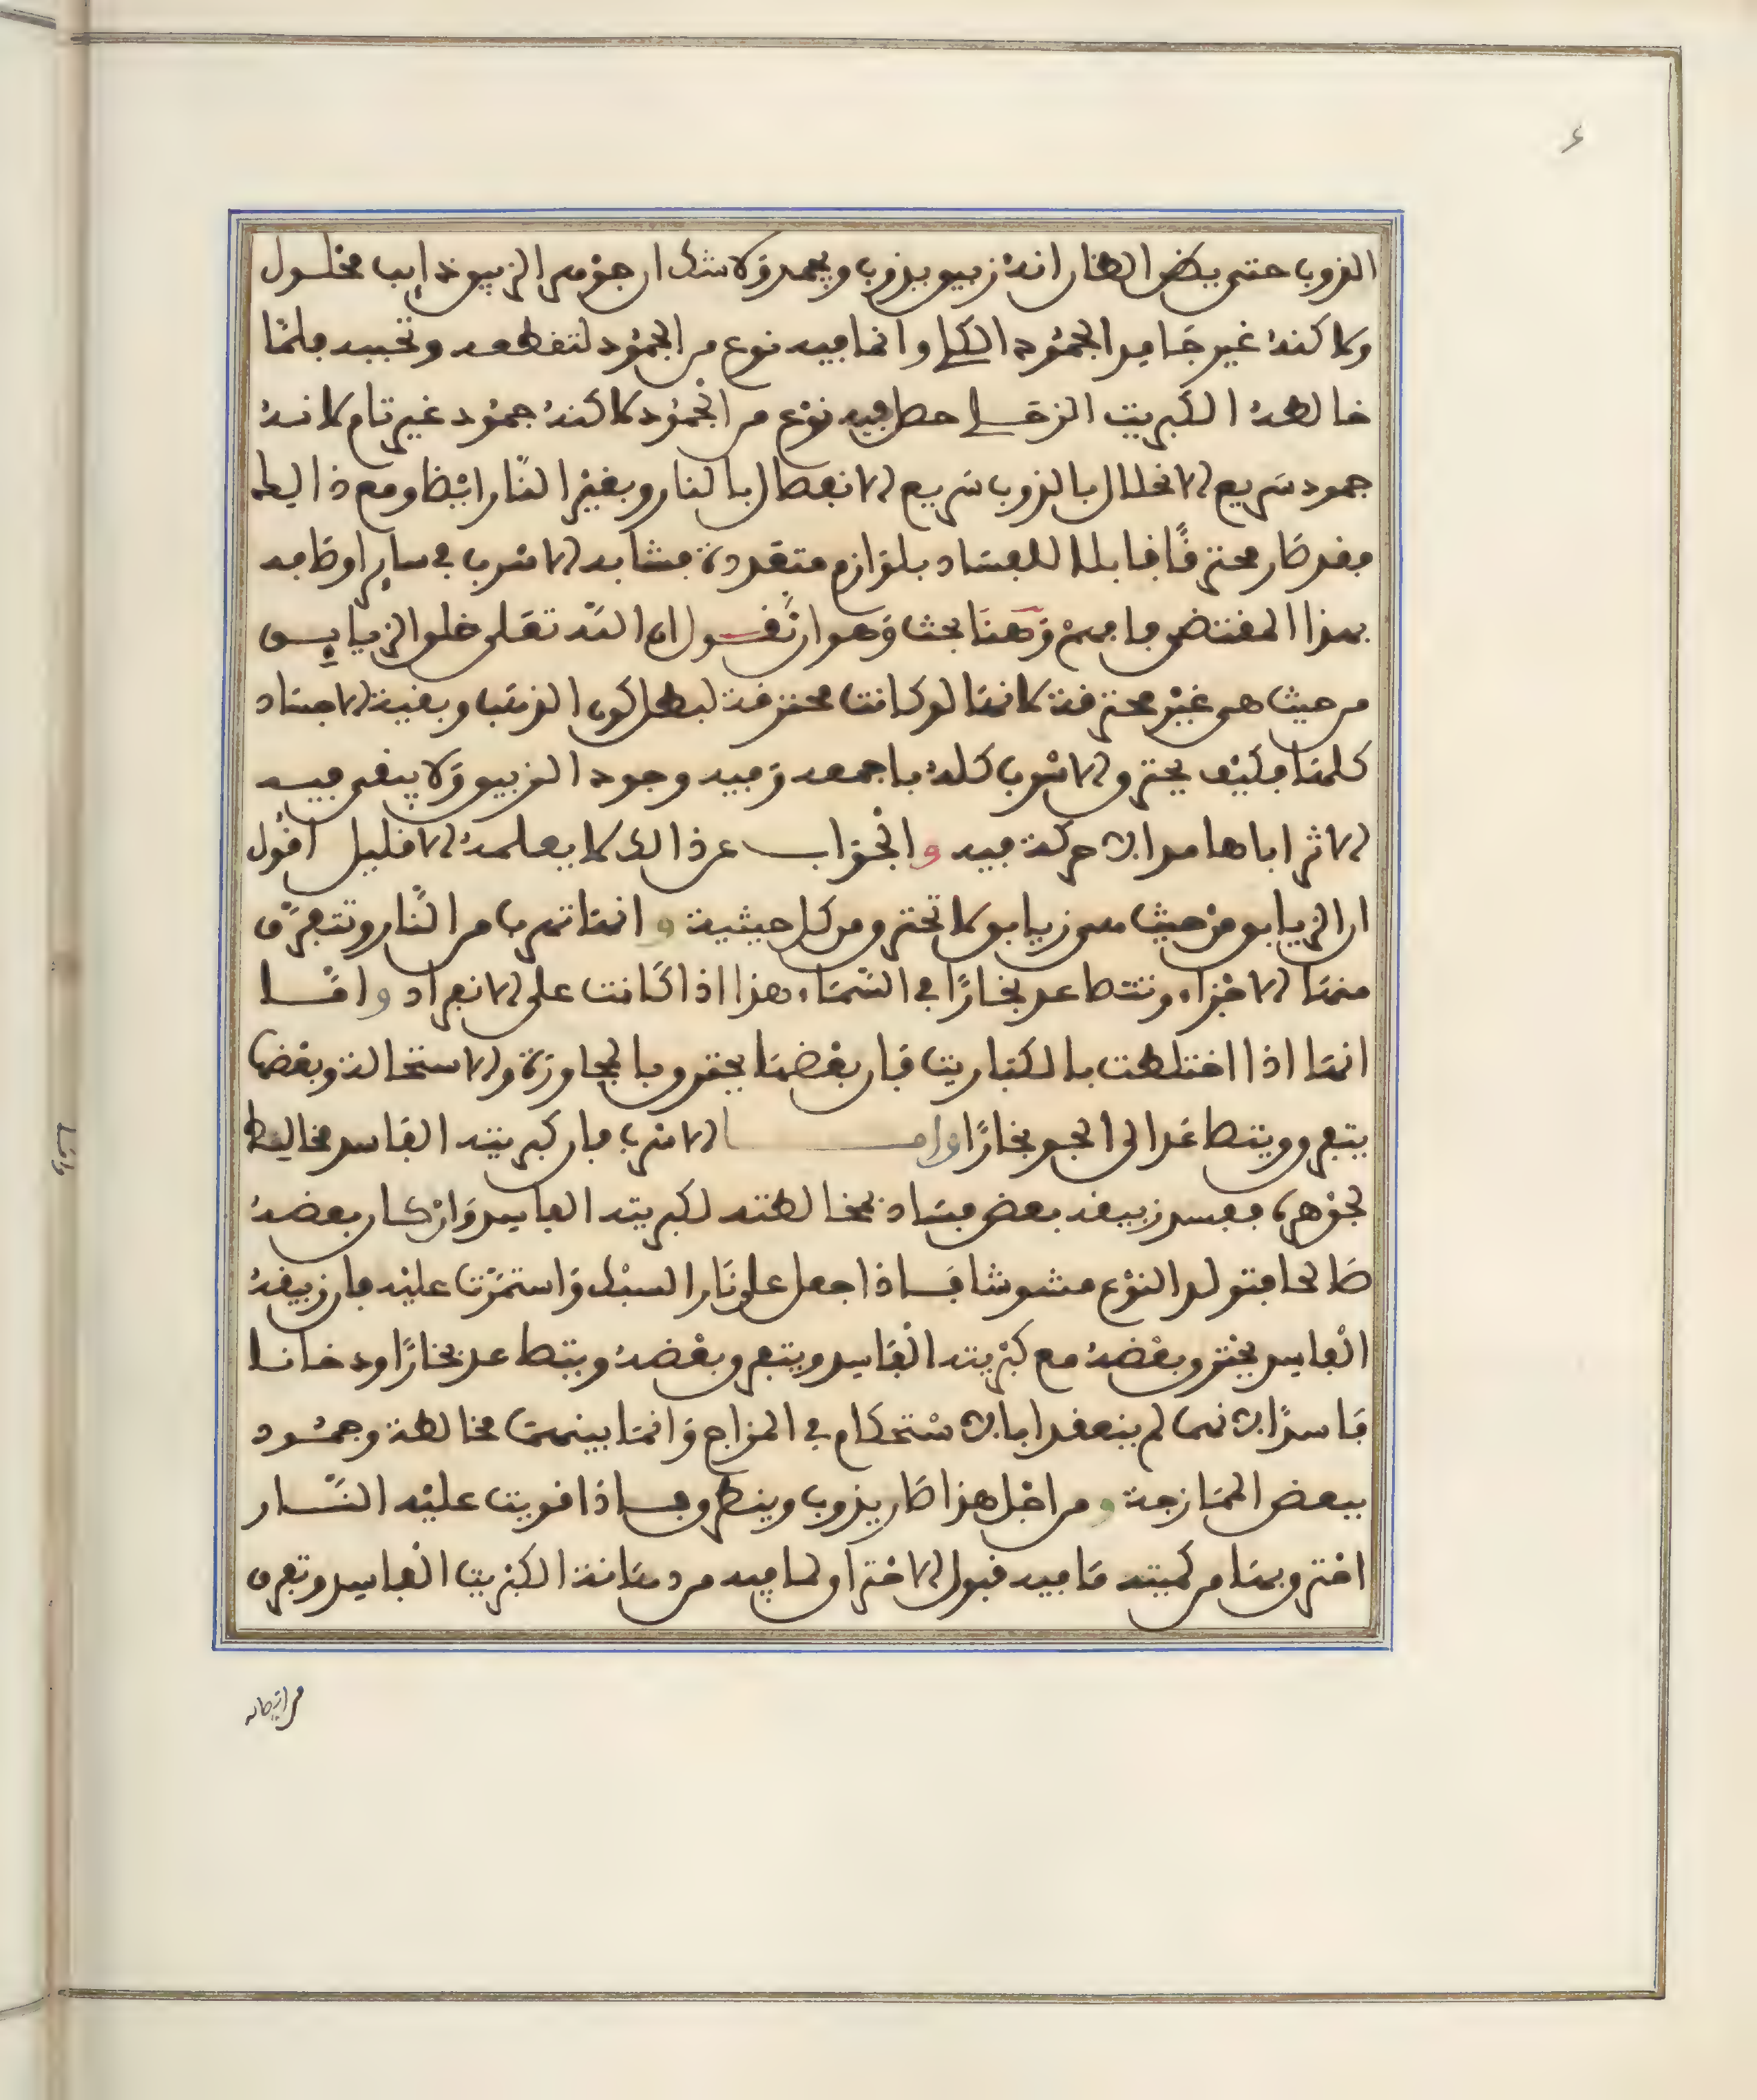 ٤
الذوب حتى يظن الظان انه زيبق يذوب ويجمد ولا شك ان جوهر الزيبق ذايب محلول
ولاكنه غير جامد الجمود الكلي وانما فيه نوع من الجمود لتقطعه وتحببه فلما
خالطه الكبريت الزحلي حصل فيه نوع من الجمود لاكنه جمود غير تام لانه
جمود سريع الانحلال بالذوب سريع الانفصال بالنار وبغير النار ايضا ومع ذالك
فقد صار محترقا قابلا للفساد بلوازم متعددة فشابه الاسرب في ساير اوصافه
بهذا المقتضى فافهم وهنا بحث وهو ان نقول ان الله تعلى خلق الزيابق
من حيث هي غير محترقة لانها لو كانت محترقة لبطل كون الذهب وبقية الاجساد
كلها فكيف يحترق الاسرب كله باجمعه وفيه وجود الزيبق ولا يبقى فيه
الاثر اباها مدا لا حركة فيه والجواب عن ذالك لا يعلمه الا قليل اقول
ان الزيابق من حيث هي زيابق لا تحترق من كل حيثية وانها تهرب من النار وتتفرق
منها الاجزاء وتتصاعد بخارًا في السماء هذا اذا كانت على الانفراد واما
انها اذا اختلطت بالكباريت فان بعضها يحترق بالمجاورة والاستحالة وبعضها
يتفرق ويتصاعد الى الجو بخارًا واما الاسرب فان كبريته الفاسد مخالط
لجوهره ففسد زيبقه بعض فساد بمخالطته لكبريته الفاسد وان كان بعضه
صالحا فتولد النوع مشوشا فاذا جعل على نار السبك واستمرت عليه فان زيبقه
الفاسد يحترق بعضه مع كبريته الفاسد ويتفرق بعضه ويتصاعد بخارًا ودخانا
فاسدًا لانهما لم ينعقدا بالاستحكام في المزاج وانما بينهما مخالطة وجمود
ببعض الممازجة ومن اجل هذا صار يذوب وينطرق فاذا قويت عليه النار
احترق بها من كميته ما فيه قبول الاحتراق لما فيه من دهانة الكبريت الفاسد وتفرق